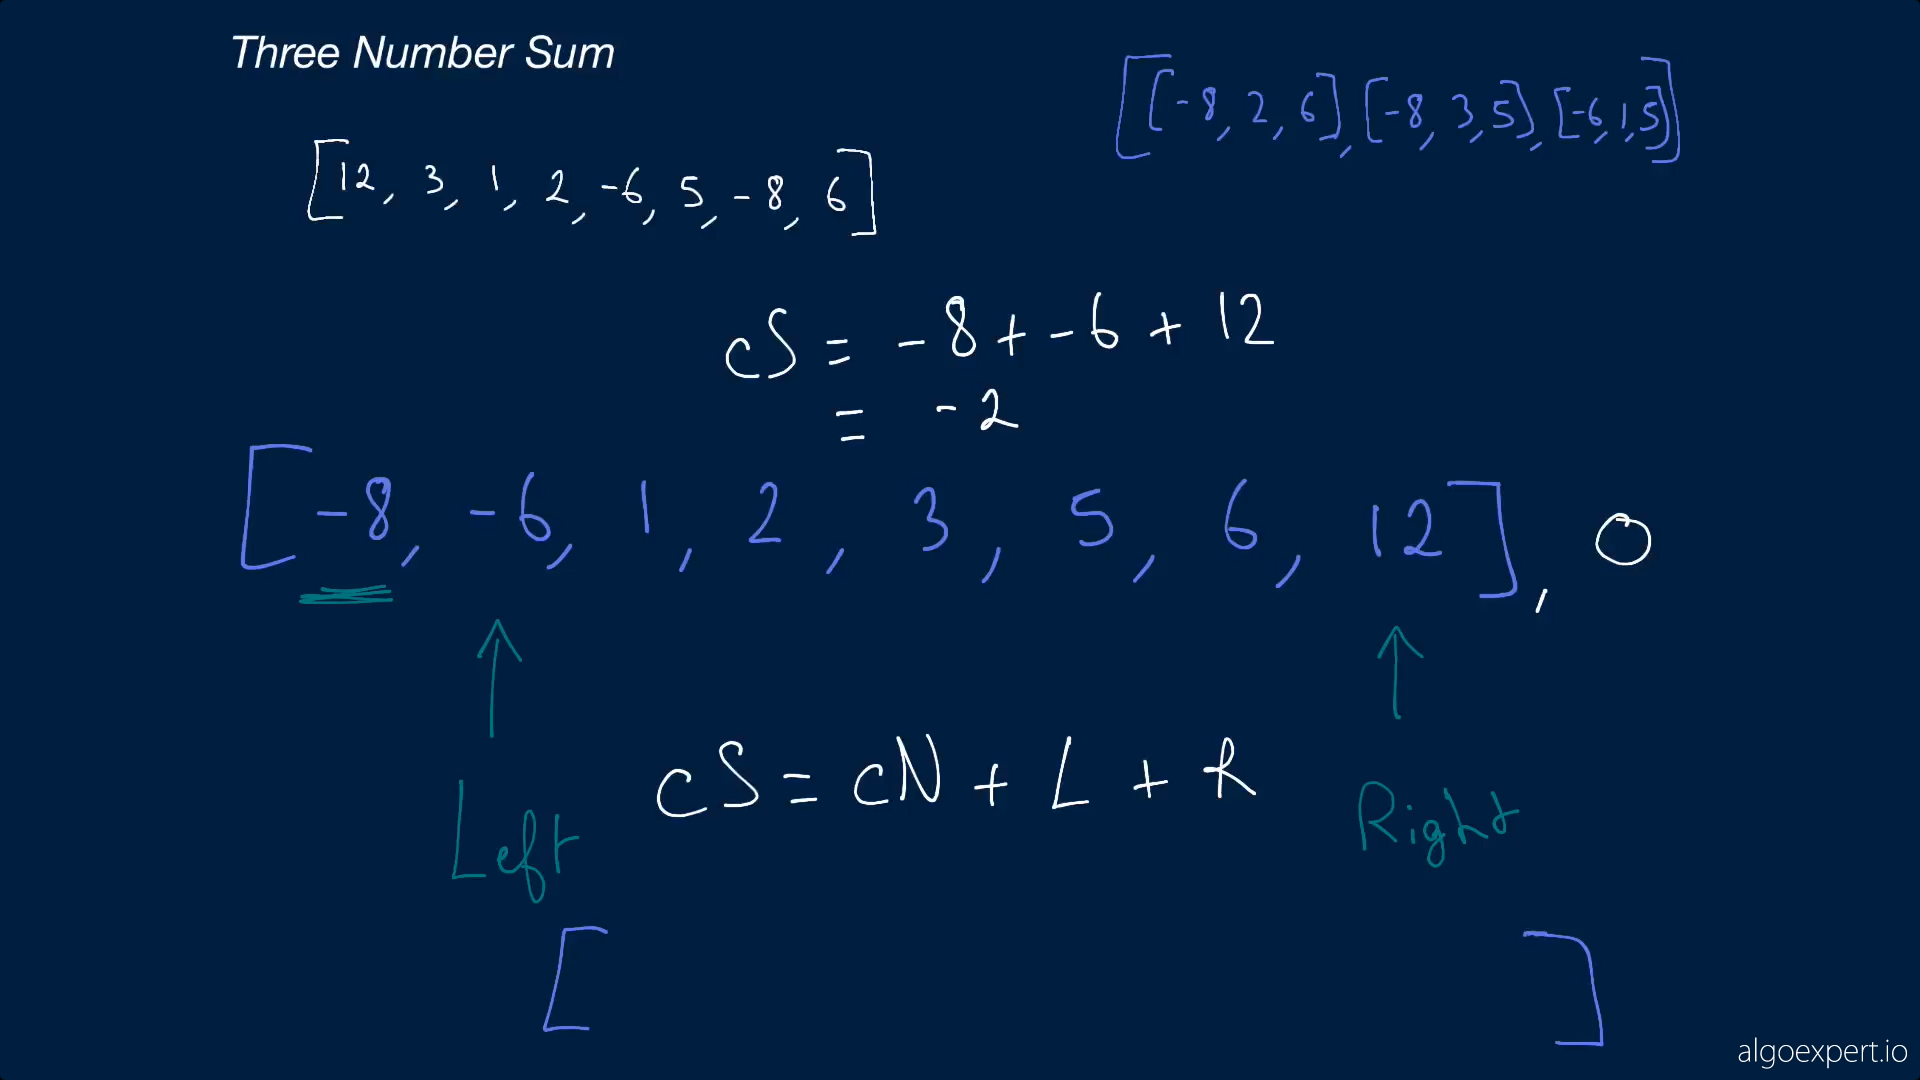 Three Number Sum
[[-8, 2, 6], [-8, 3, 5], [-6, 1, 5]]
[12, 3, 1, 2, -6, 5, -8, 6]
cS = -8 + -6 + 12
= -2
[-8, -6, 1, 2, 3, 5, 6, 12], 0
cS = cN + L + R
Left
Right
[ ]
algoexpert.io